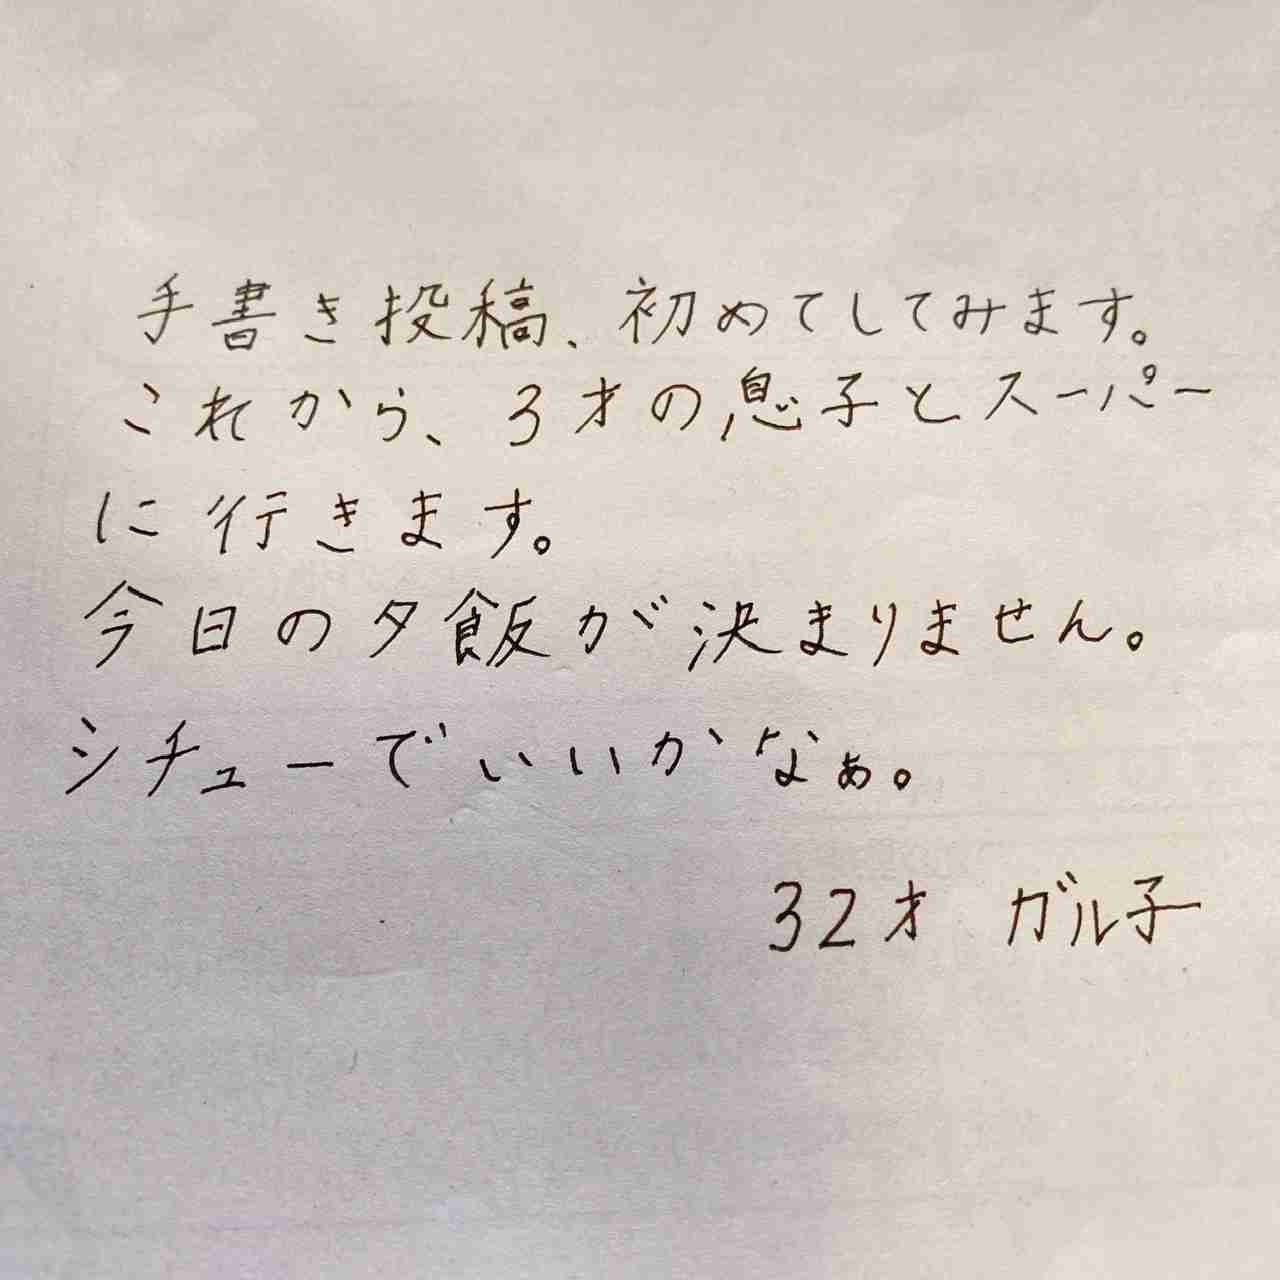 手書き投稿、初めてしてみます。
これから、3才の息子とスーパー
に行きます。
今日の夕飯が決まりません。
シチューでいいかなぁ。
32才 ガル子